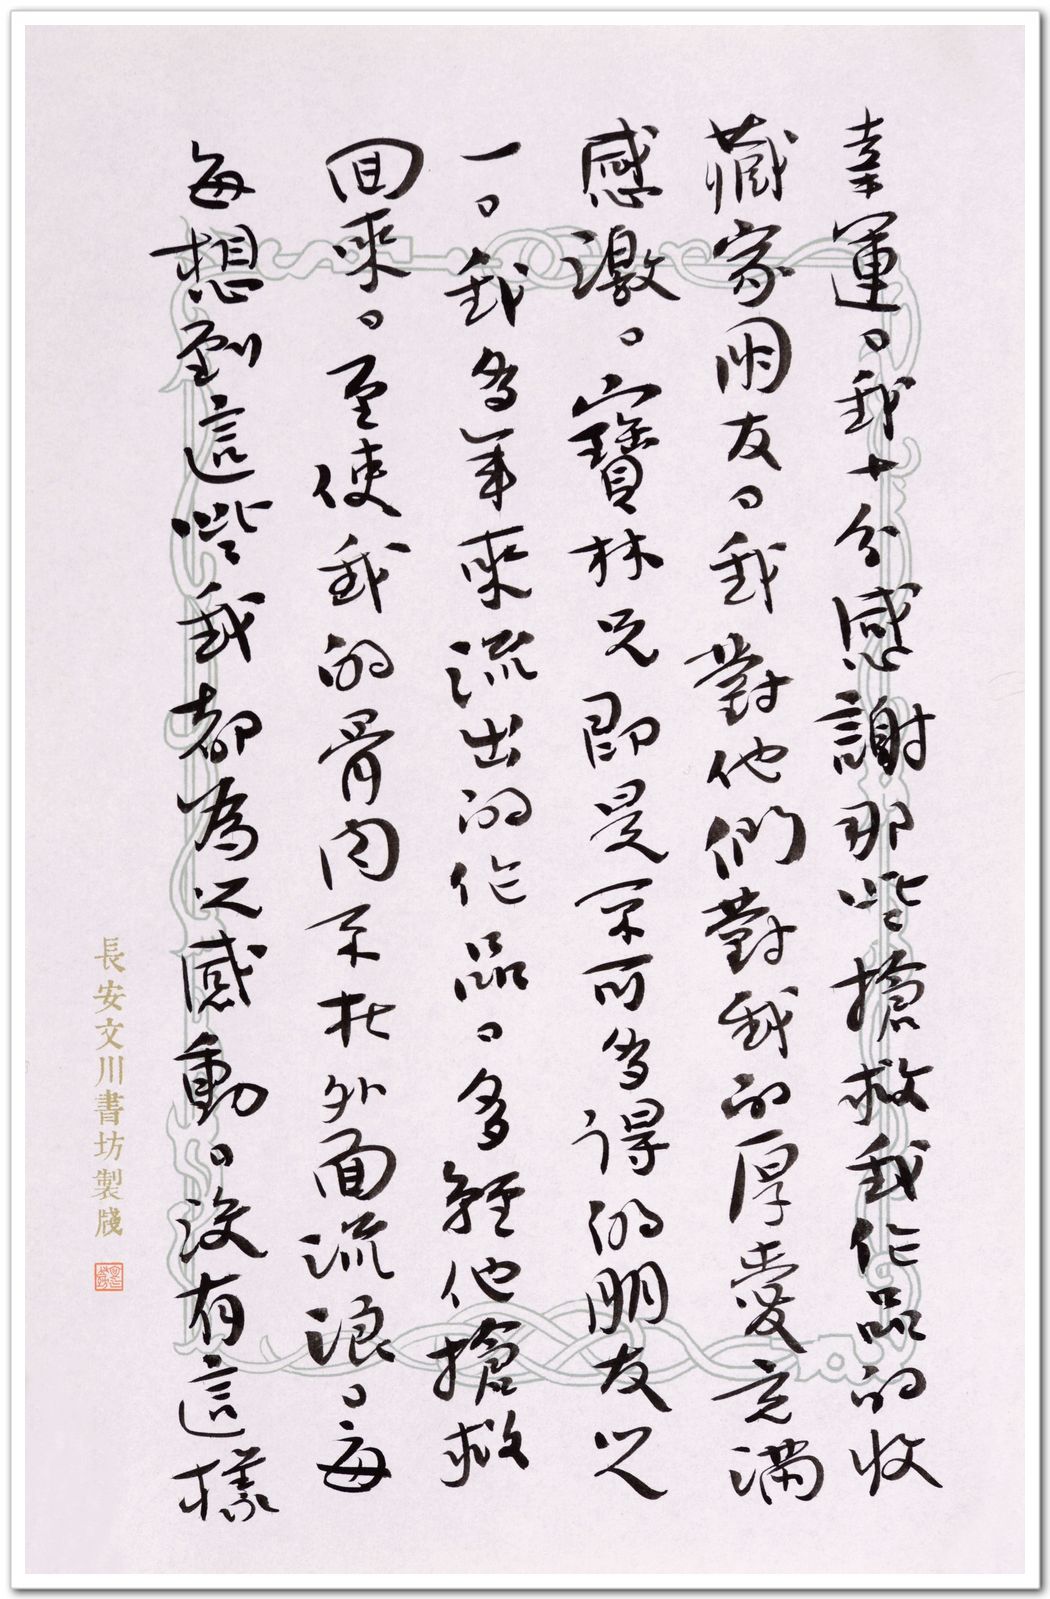 幸運。我十分感謝那些搶救我作品的收
藏家朋友。我對他們對我的厚愛充滿
感激。寶林兄即是不可多得的朋友之
一。我多年來流出的作品。多經他搶救
回來。至使我的骨肉不在外面流浪。每
每想到這些我都為之感動。沒有這樣
長安文川書坊製牋